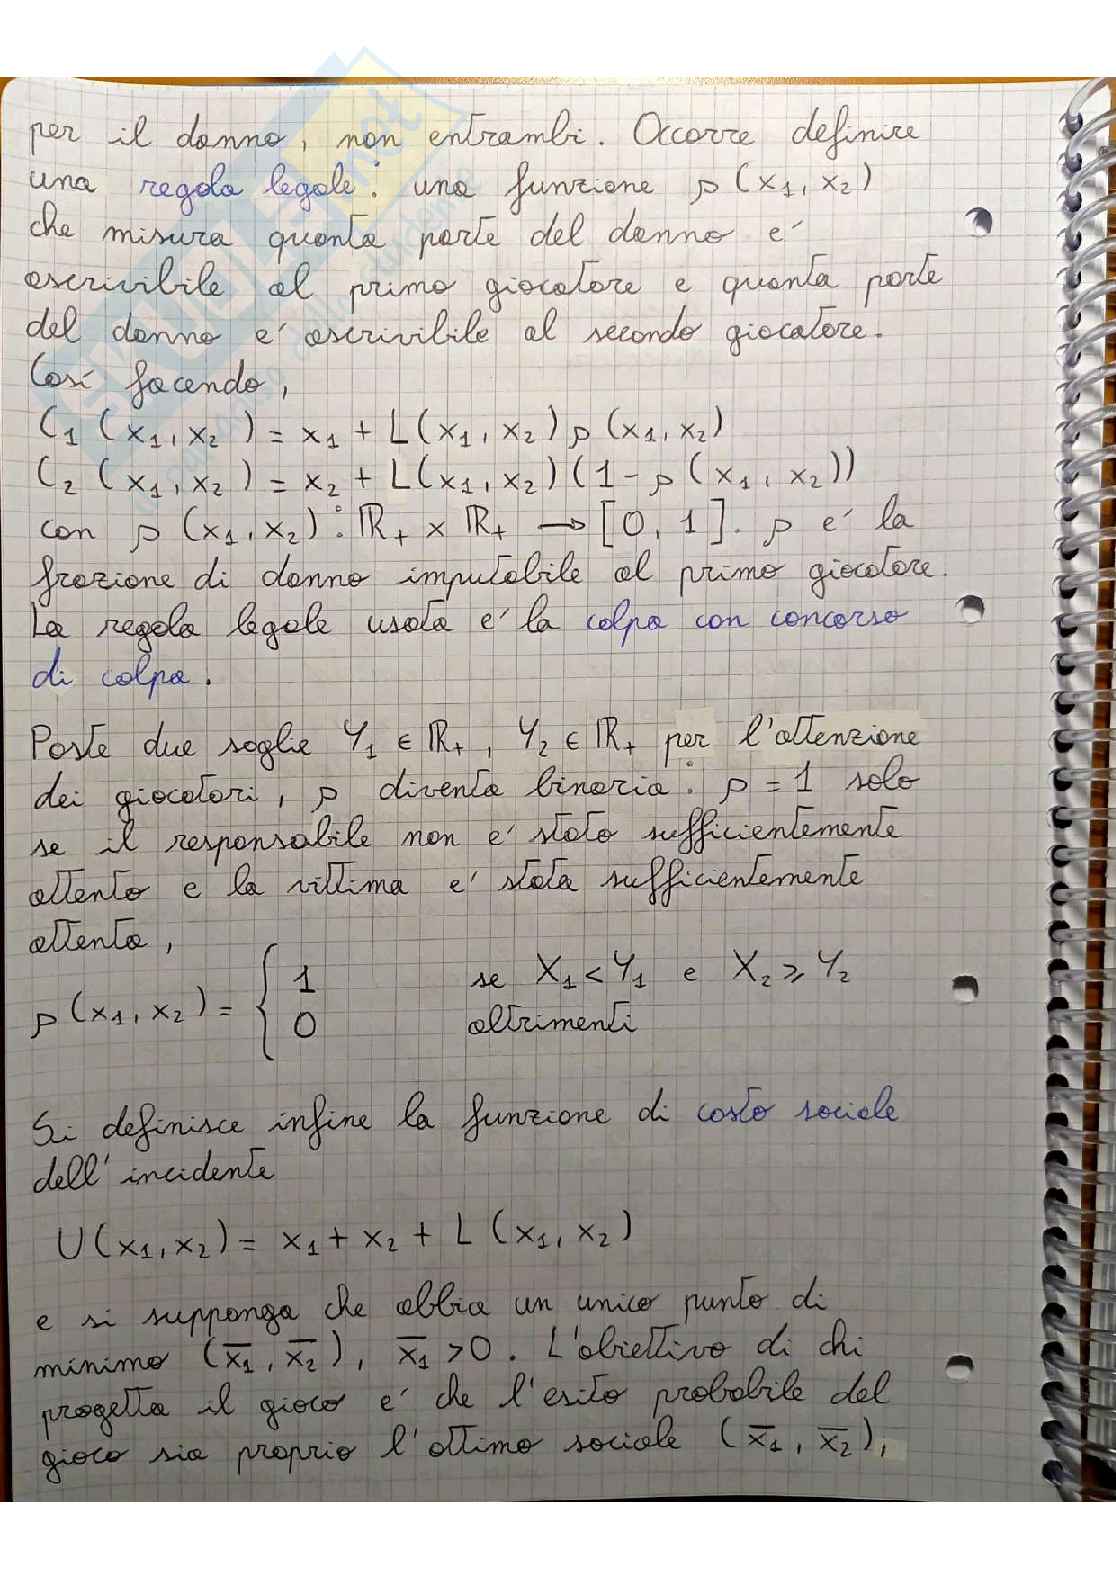 per il danno, non entrambi. Occorre definire
una regola legale: una funzione ρ(x₁, x₂)
che misura quanta parte del danno e'
ascrivibile al primo giocatore e quanta parte
del danno e' ascrivibile al secondo giocatore.
Così facendo,
C₁(x₁, x₂) = x₁ + L(x₁, x₂) ρ(x₁, x₂)
C₂(x₁, x₂) = x₂ + L(x₁, x₂)(1-ρ(x₁, x₂))
con ρ(x₁, x₂): ℝ₊ × ℝ₊ → [0, 1]. ρ e' la
frazione di danno imputabile al primo giocatore.
La regola legale usata e' la colpa con concorso
di colpa.
Poste due soglie Y₁ ∈ ℝ₊, Y₂ ∈ ℝ₊ per l'attenzione
dei giocatori, ρ diventa binaria: ρ = 1 solo
se il responsabile non e' stato sufficientemente
attento e la vittima e' stata sufficientemente
attenta,
ρ(x₁, x₂) = { 1 se X₁ < Y₁ e X₂ ≥ Y₂
0 altrimenti
Si definisce infine la funzione di costo sociale
dell'incidente
U(x₁, x₂) = x₁ + x₂ + L(x₁, x₂)
e si supponga che abbia un unico punto di
minimo (x̄₁, x̄₂), x̄₁ > 0. L'obiettivo di chi
progetta il gioco e' che l'esito probabile del
gioco sia proprio l'ottimo sociale (x̄₁, x̄₂),